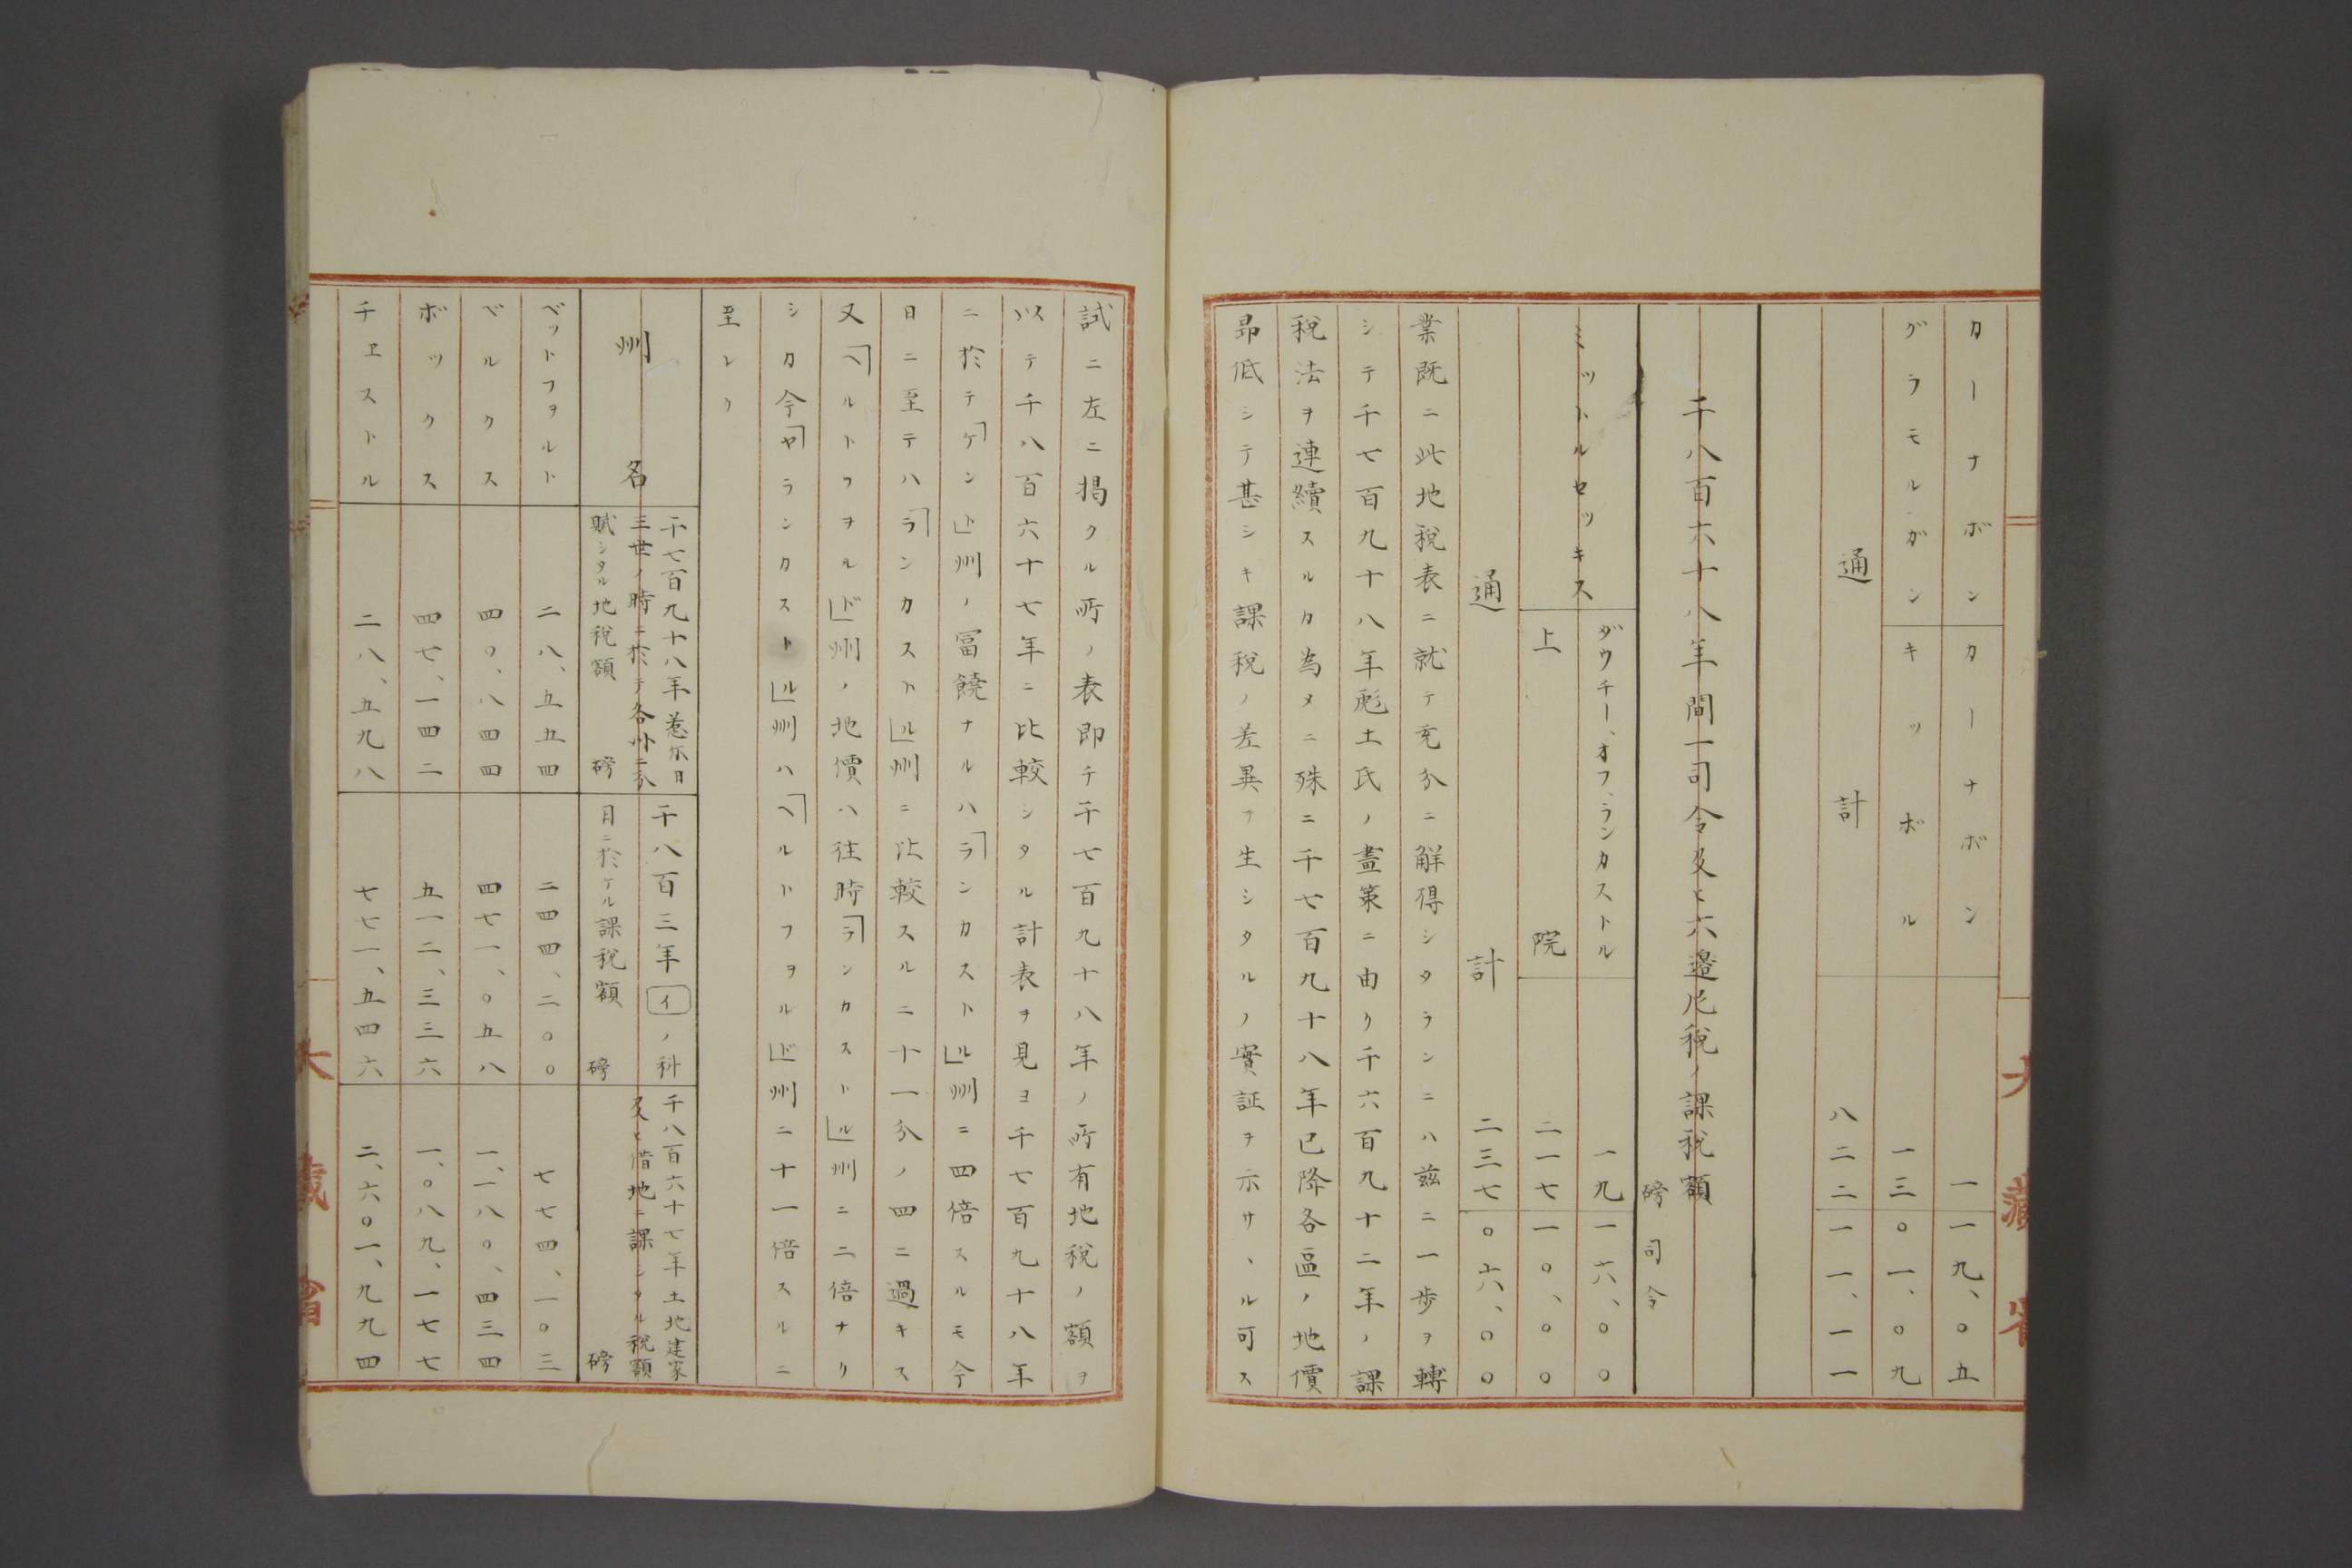 カーナボン カーナボン 一一九、〇五
グラモルガン キツボル 一三〇一、〇九
通計 八二二一一、一一
千八百六十八年間一司令及ヒ六邉尼税ノ課税額
磅 司令
ミツトルセツキス ダウチー、オフ、ランカストル 一九一六、〇〇
上院 二一七一〇、〇〇
通計 二三七〇六、〇〇
業既ニ此地税表ニ就テ充分ニ解得シタランニハ茲ニ一歩ヲ轉
シテ千七百九十八年彪土氏ノ畫策ニ由リ千六百九十二年ノ課
税法ヲ連續スルカ為メニ殊ニ千七百九十八年已降各區ノ地價
昻低シテ甚シキ課税ノ差異ヲ生シタルノ實証ヲ示サヽル可ス
試ニ左ニ掲クル所ノ表即チ千七百九十八年ノ所有地税ノ額ヲ
以テ千八百六十七年ニ比較シタル計表ヲ見ヨ千七百九十八年
ニ於テ「ケント」州ノ冨饒ナルハ「ランカストル」州ニ四倍スルモ今
日ニ至テハ「ランカストル」州ニ比較スルニ十一分ノ四ニ過キス
又「ヘルトフヲルド」州ノ地價ハ往時「ランカストル」州ニ二倍ナリ
シカ今「ヤランカストル」州ハ「ヘルトフヲルド」州ニ十一倍スルニ
至レリ
州名
千七百九十八年惹尓日
三世ノ時ニ於テ各州ニ分
賦シタル地税額 磅
千八百三年イノ科
目ニ於ケル課税額 磅
千八百六十七年土地建家
及ヒ借地ニ課シタル税額
磅
ベットフヲルト 二八、五五四 二四四、二〇〇 七七四、一〇三
ベルクス 四〇、八四四 四七一、〇五八 一、一八〇、四三四
ボックス 四七、一四二 五一二、三三六 一、〇八九、一七七
チヱストル 二八、五九八 七七一、五四六 二、六〇一、九九四
大藏省